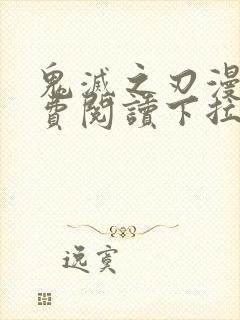 鬼滅之刃漫
費閱讀下拉
逸寞